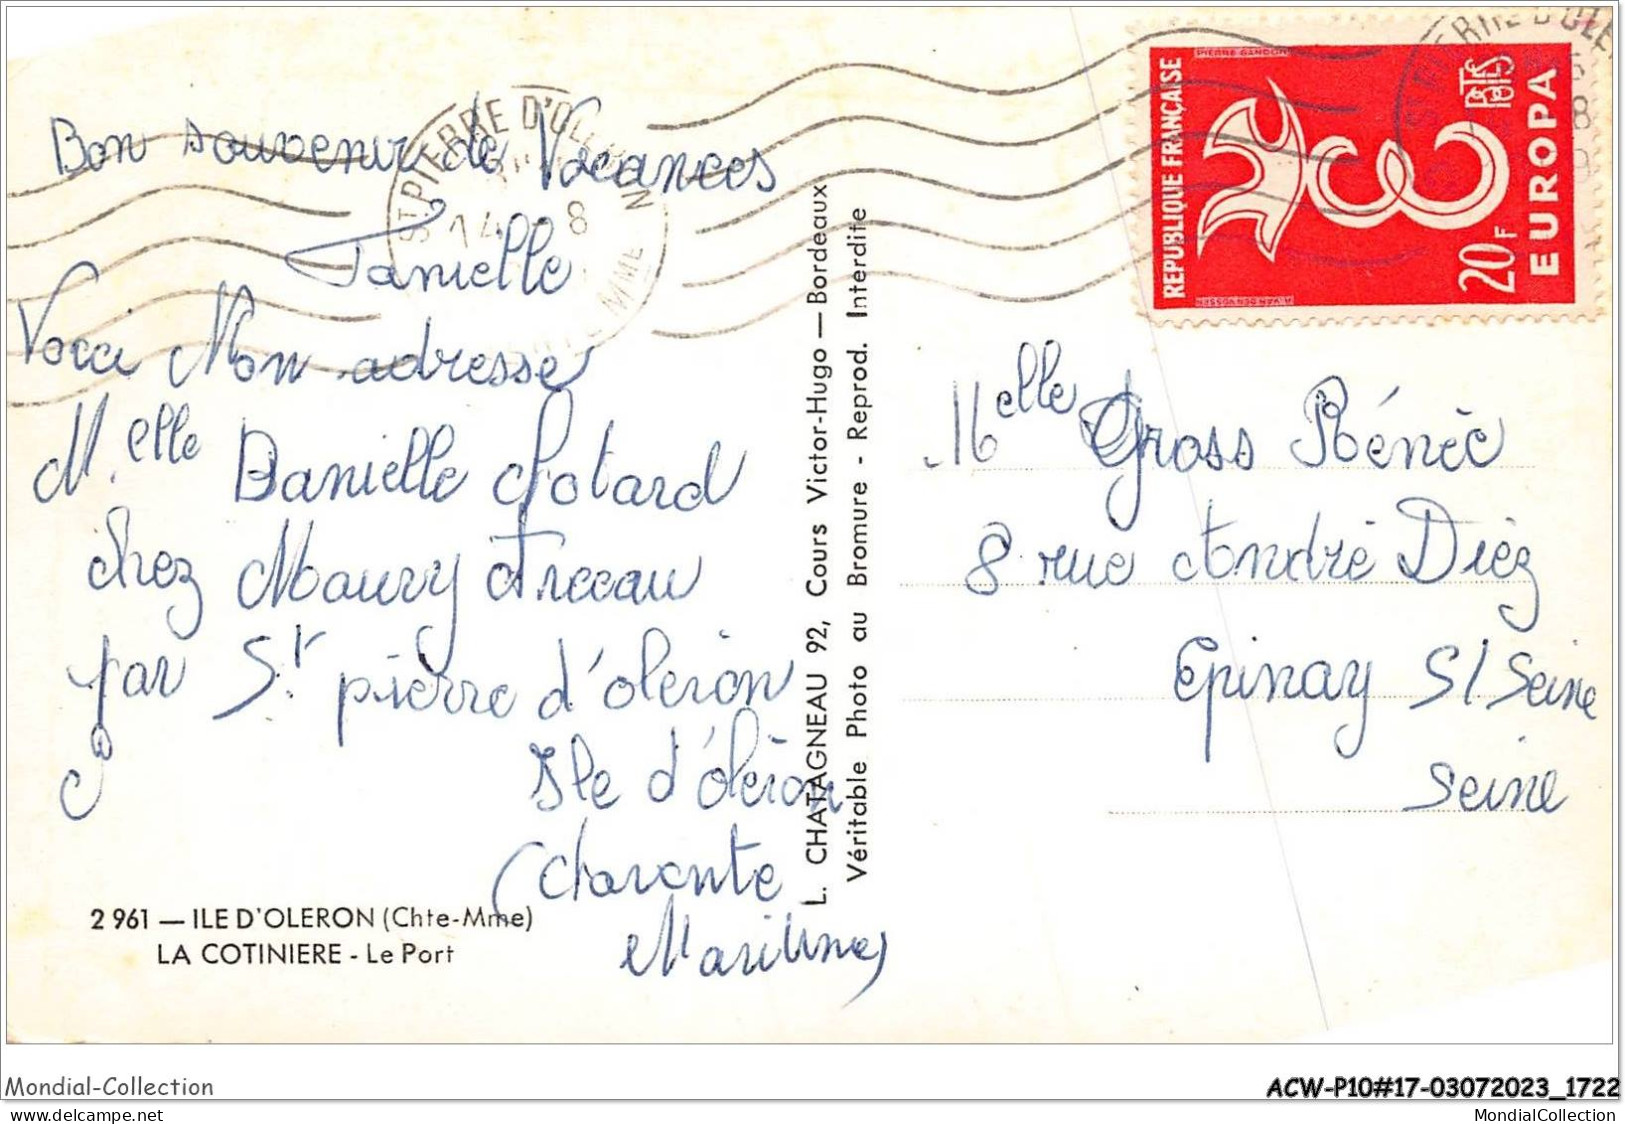 Bon souvenir de Vacances
Danielle
Voici Mon adresse
M.elle Danielle
chez Maury
par St pierre d'oleron
Ile d'óleron
(Charente
Maritime)
2 961 — ILE D'OLERON (Chte-Mme)
LA COTINIERE - Le Port
L. CHATAGNEAU 92, Cours Victor-Hugo — Bordeaux
Véritable Photo au Bromure - Reprod. Interdite
ST PIERRE D'OLERON
14 8
ST PIERRE D'OLE
PIERRE GANDON
REPUBLIQUE FRANÇAISE
POSTES
20F
EUROPA
Melle Gross Rénée
8 rue André Diéz
Epinay S/Seine
Seine
Mondial-Collection
www.delcampe.net
ACW-P10#17-03072023_1722
MondialCollection